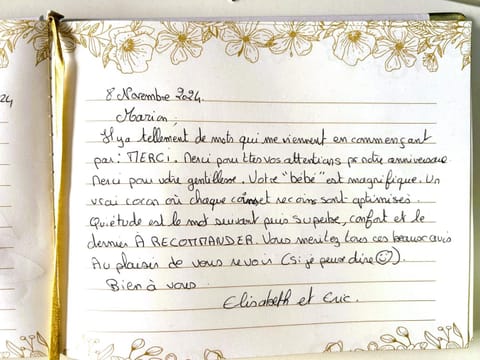 24
8 Novembre 2024.
Marion,
Il y a tellement de mots qui me viennent en commençant
par : MERCI. Merci pour ttes vos attentions pr notre anniversaire
Merci pour votre gentillesse. Votre "bébé" est magnifique. Un
vrai cocon où chaque coin et recoin sont optimisés.
Quiétude est le mot suivant puis superbe, confort et le
dernier A RECOMMANDER. Vous méritez tous ces beaux avis
Au plaisir de vous revoir (si je peux dire ☺).
Bien à vous
Elisabeth et Eric.